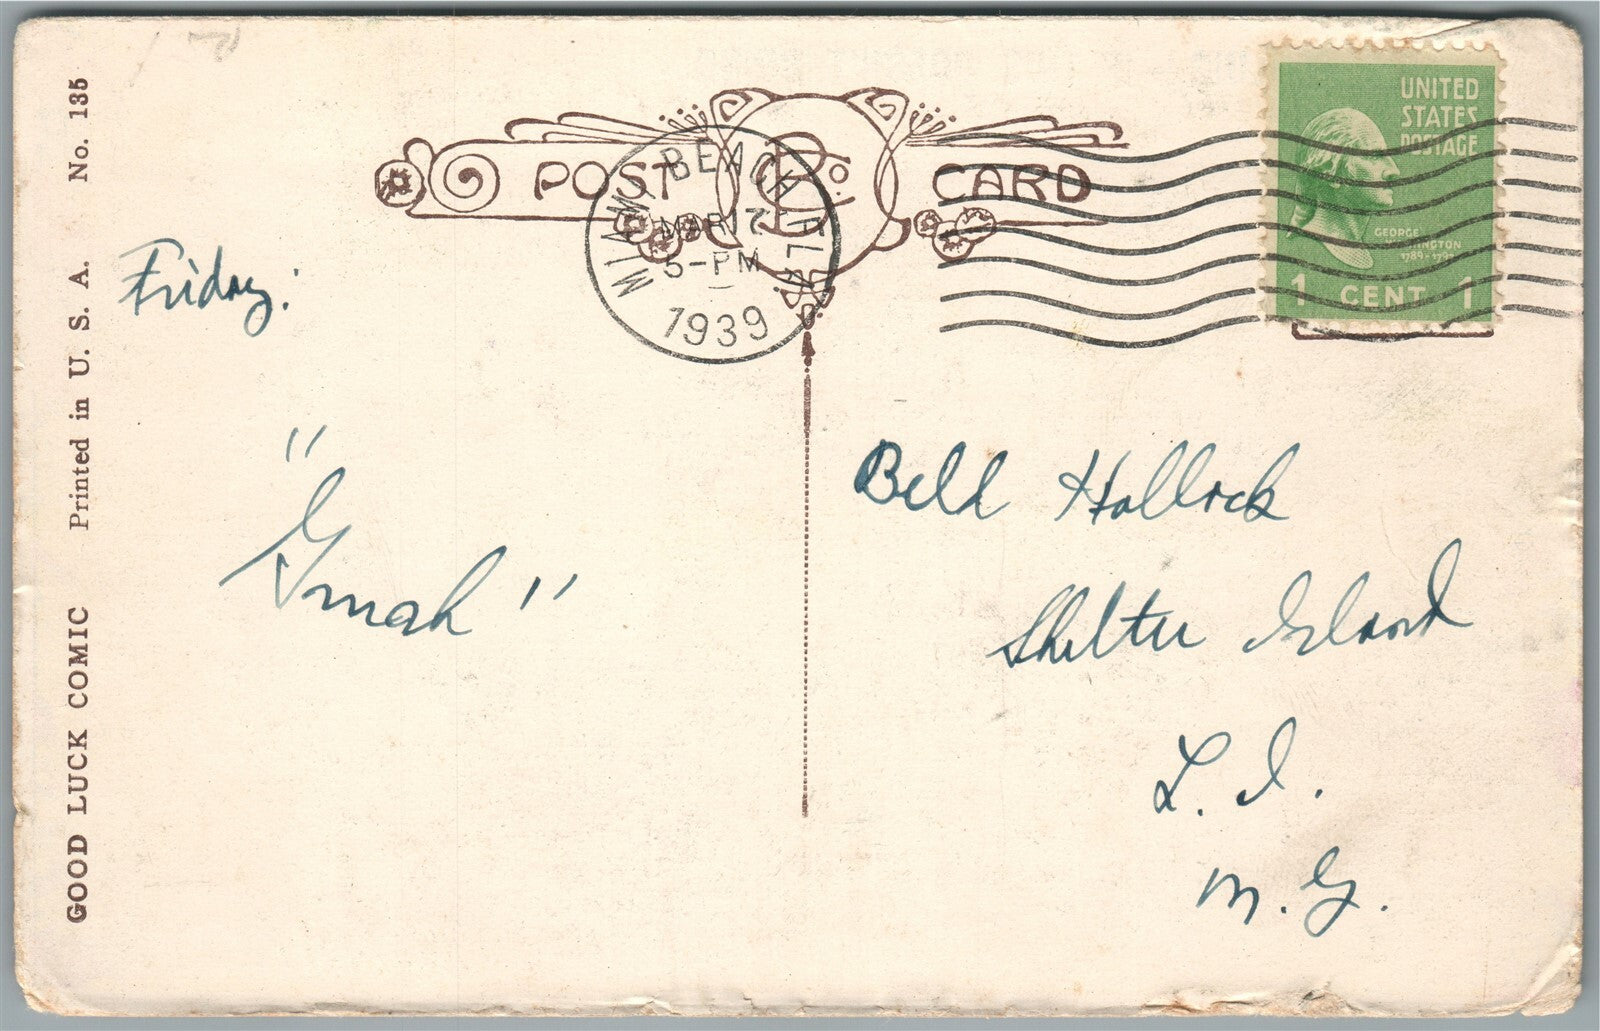 GOOD LUCK COMIC Printed in U. S. A. No. 135
POST CARD
MIAMI BEACH, FLA.
MAR 17
5-PM
1939
UNITED
STATES
POSTAGE
GEORGE
WASHINGTON
1789-1797
1 CENT 1
Friday:
"Gmah"
Bill Hallock
Shelter Island
L. I.
N. Y.